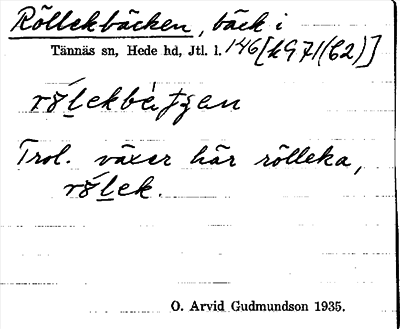 Röllekbäcken, bäck i
Tännäs sn, Hede hd, Jtl. l. 146 [k971(C2)]
Trol. växer här rölleka,
O. Arvid Gudmundson 1935.